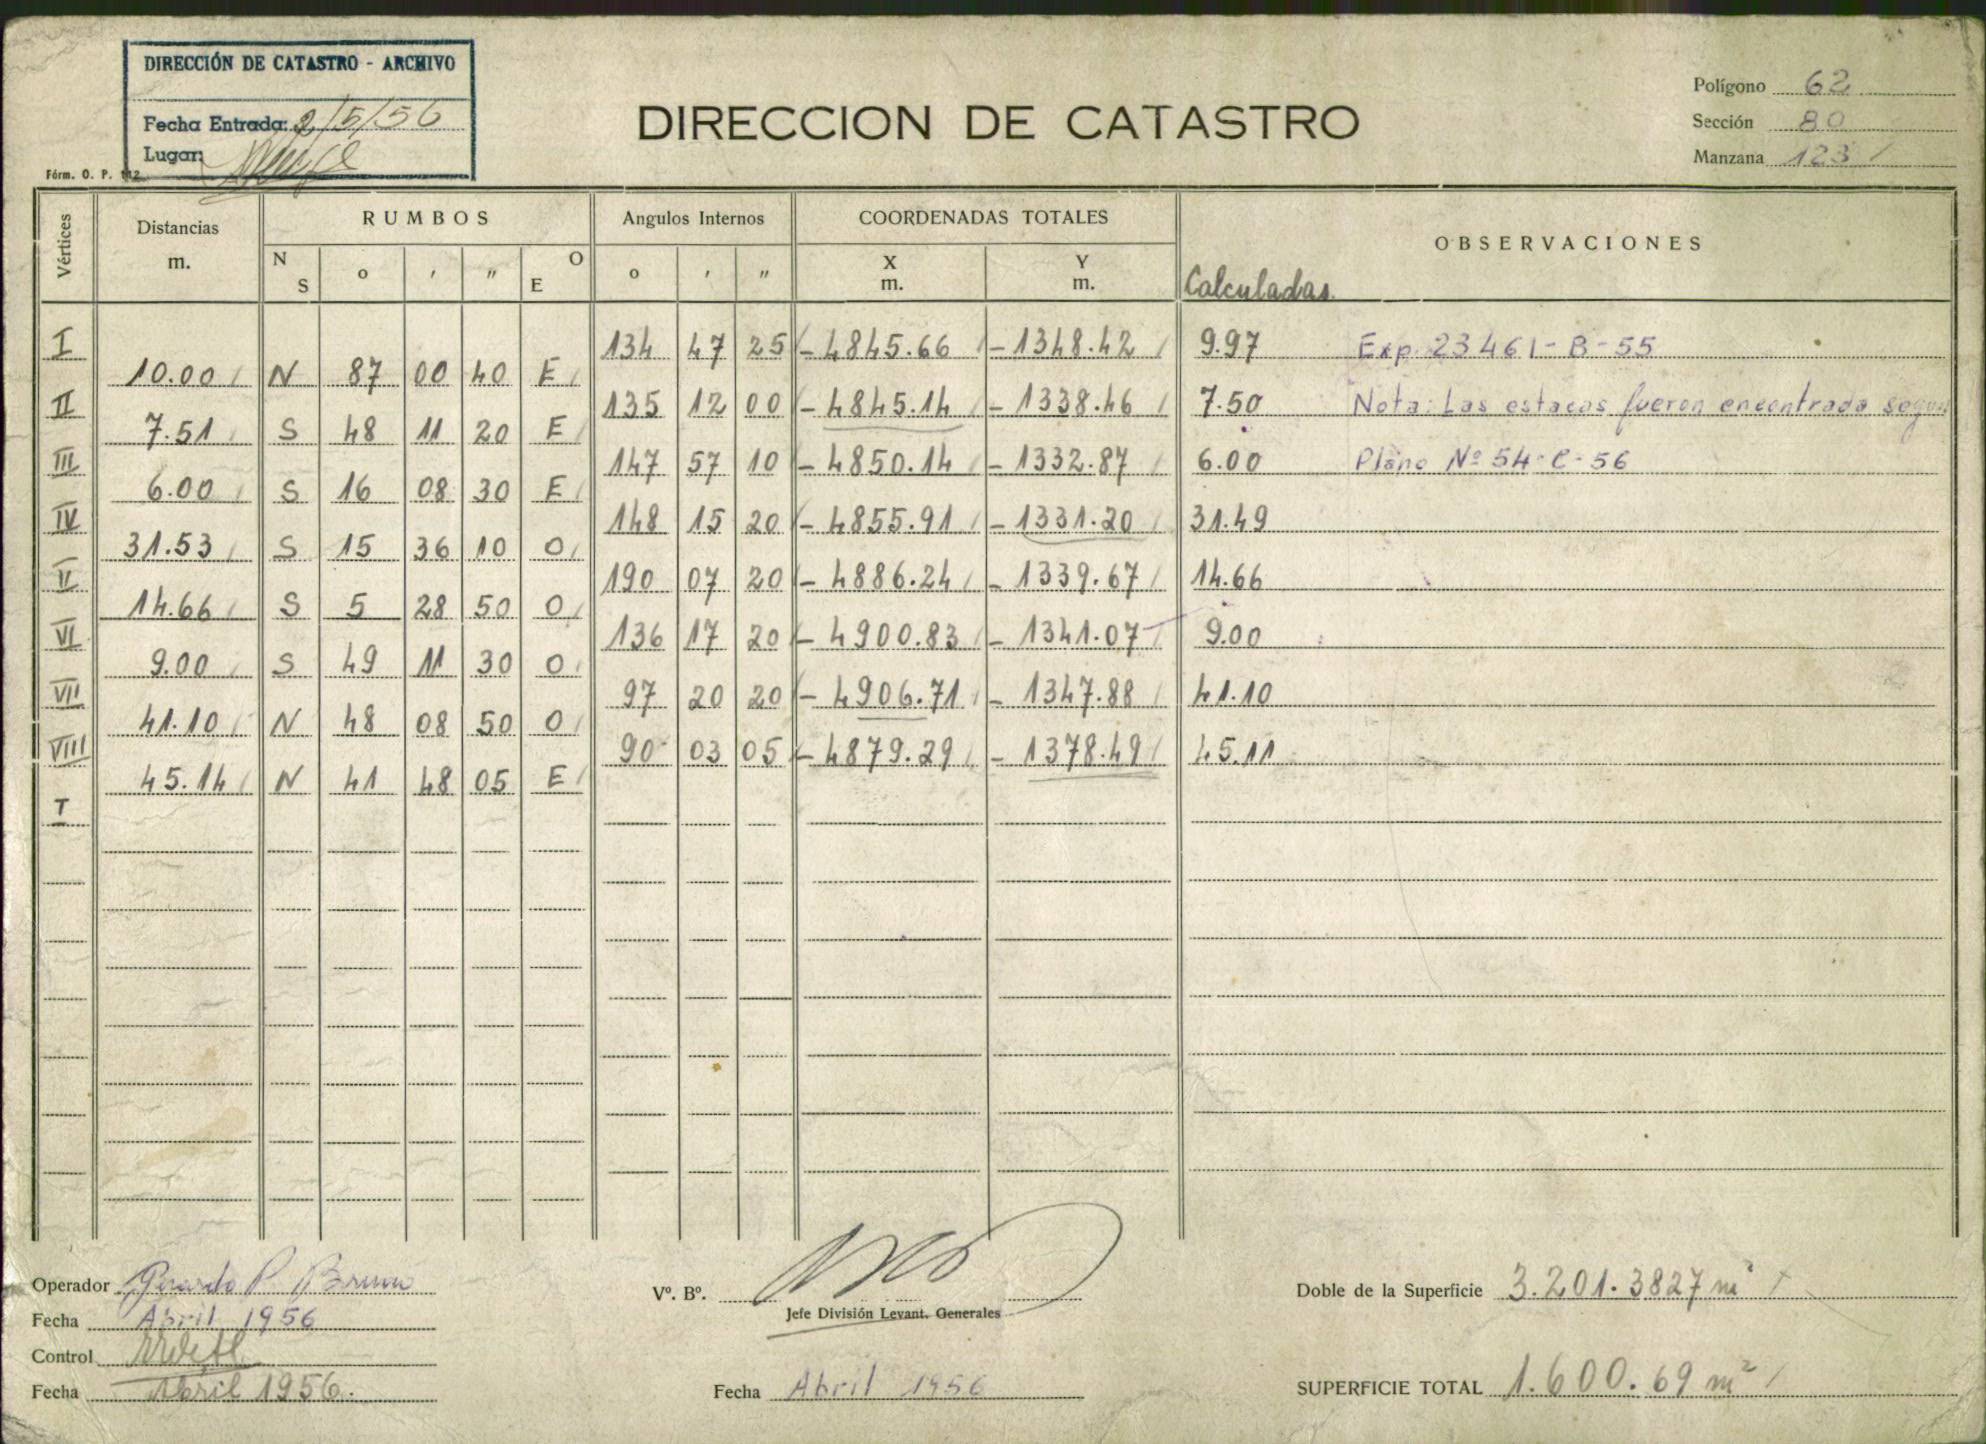 DIRECCIÓN DE CATASTRO - ARCHIVO
Fecha Entrada: 2/5/56
Lugar:
Fórm. O. P. 112
DIRECCION DE CATASTRO
Polígono 62
Sección 80
Manzana 123
Vértices Distancias m. RUMBOS Angulos Internos COORDENADAS TOTALES OBSERVACIONES
N S o ' " O E o ' " X m. Y m. Calculadas
I 134 47 25 - 4845.66 - 1348.42 9.97 Exp. 23461-B-55
10.00 N 87 00 40 E
II 135 12 00 - 4845.14 - 1338.46 7.50 Nota: Las estacas fueron encontrada segun
7.51 S 48 11 20 E
III 147 57 10 - 4850.14 - 1332.87 6.00 Plano Nº 54-C-56
6.00 S 16 08 30 E
IV 148 15 20 - 4855.91 - 1331.20 31.49
31.53 S 15 36 10 O
V 190 07 20 - 4886.24 - 1339.67 14.66
14.66 S 5 28 50 O
VI 136 17 20 - 4900.83 - 1341.07 9.00
9.00 S 49 11 30 O
VII 97 20 20 - 4906.71 - 1347.88 41.10
41.10 N 48 08 50 O
VIII 90 03 05 - 4879.29 - 1378.49 45.11
45.14 N 41 48 05 E
I
Operador Gerardo P. Bruno
Fecha Abril 1956
Control
Fecha Abril 1956.
Vº. Bº.
Jefe División Levant. Generales
Fecha Abril 1956
Doble de la Superficie 3.201.3827 m²
SUPERFICIE TOTAL 1.600.69 m²